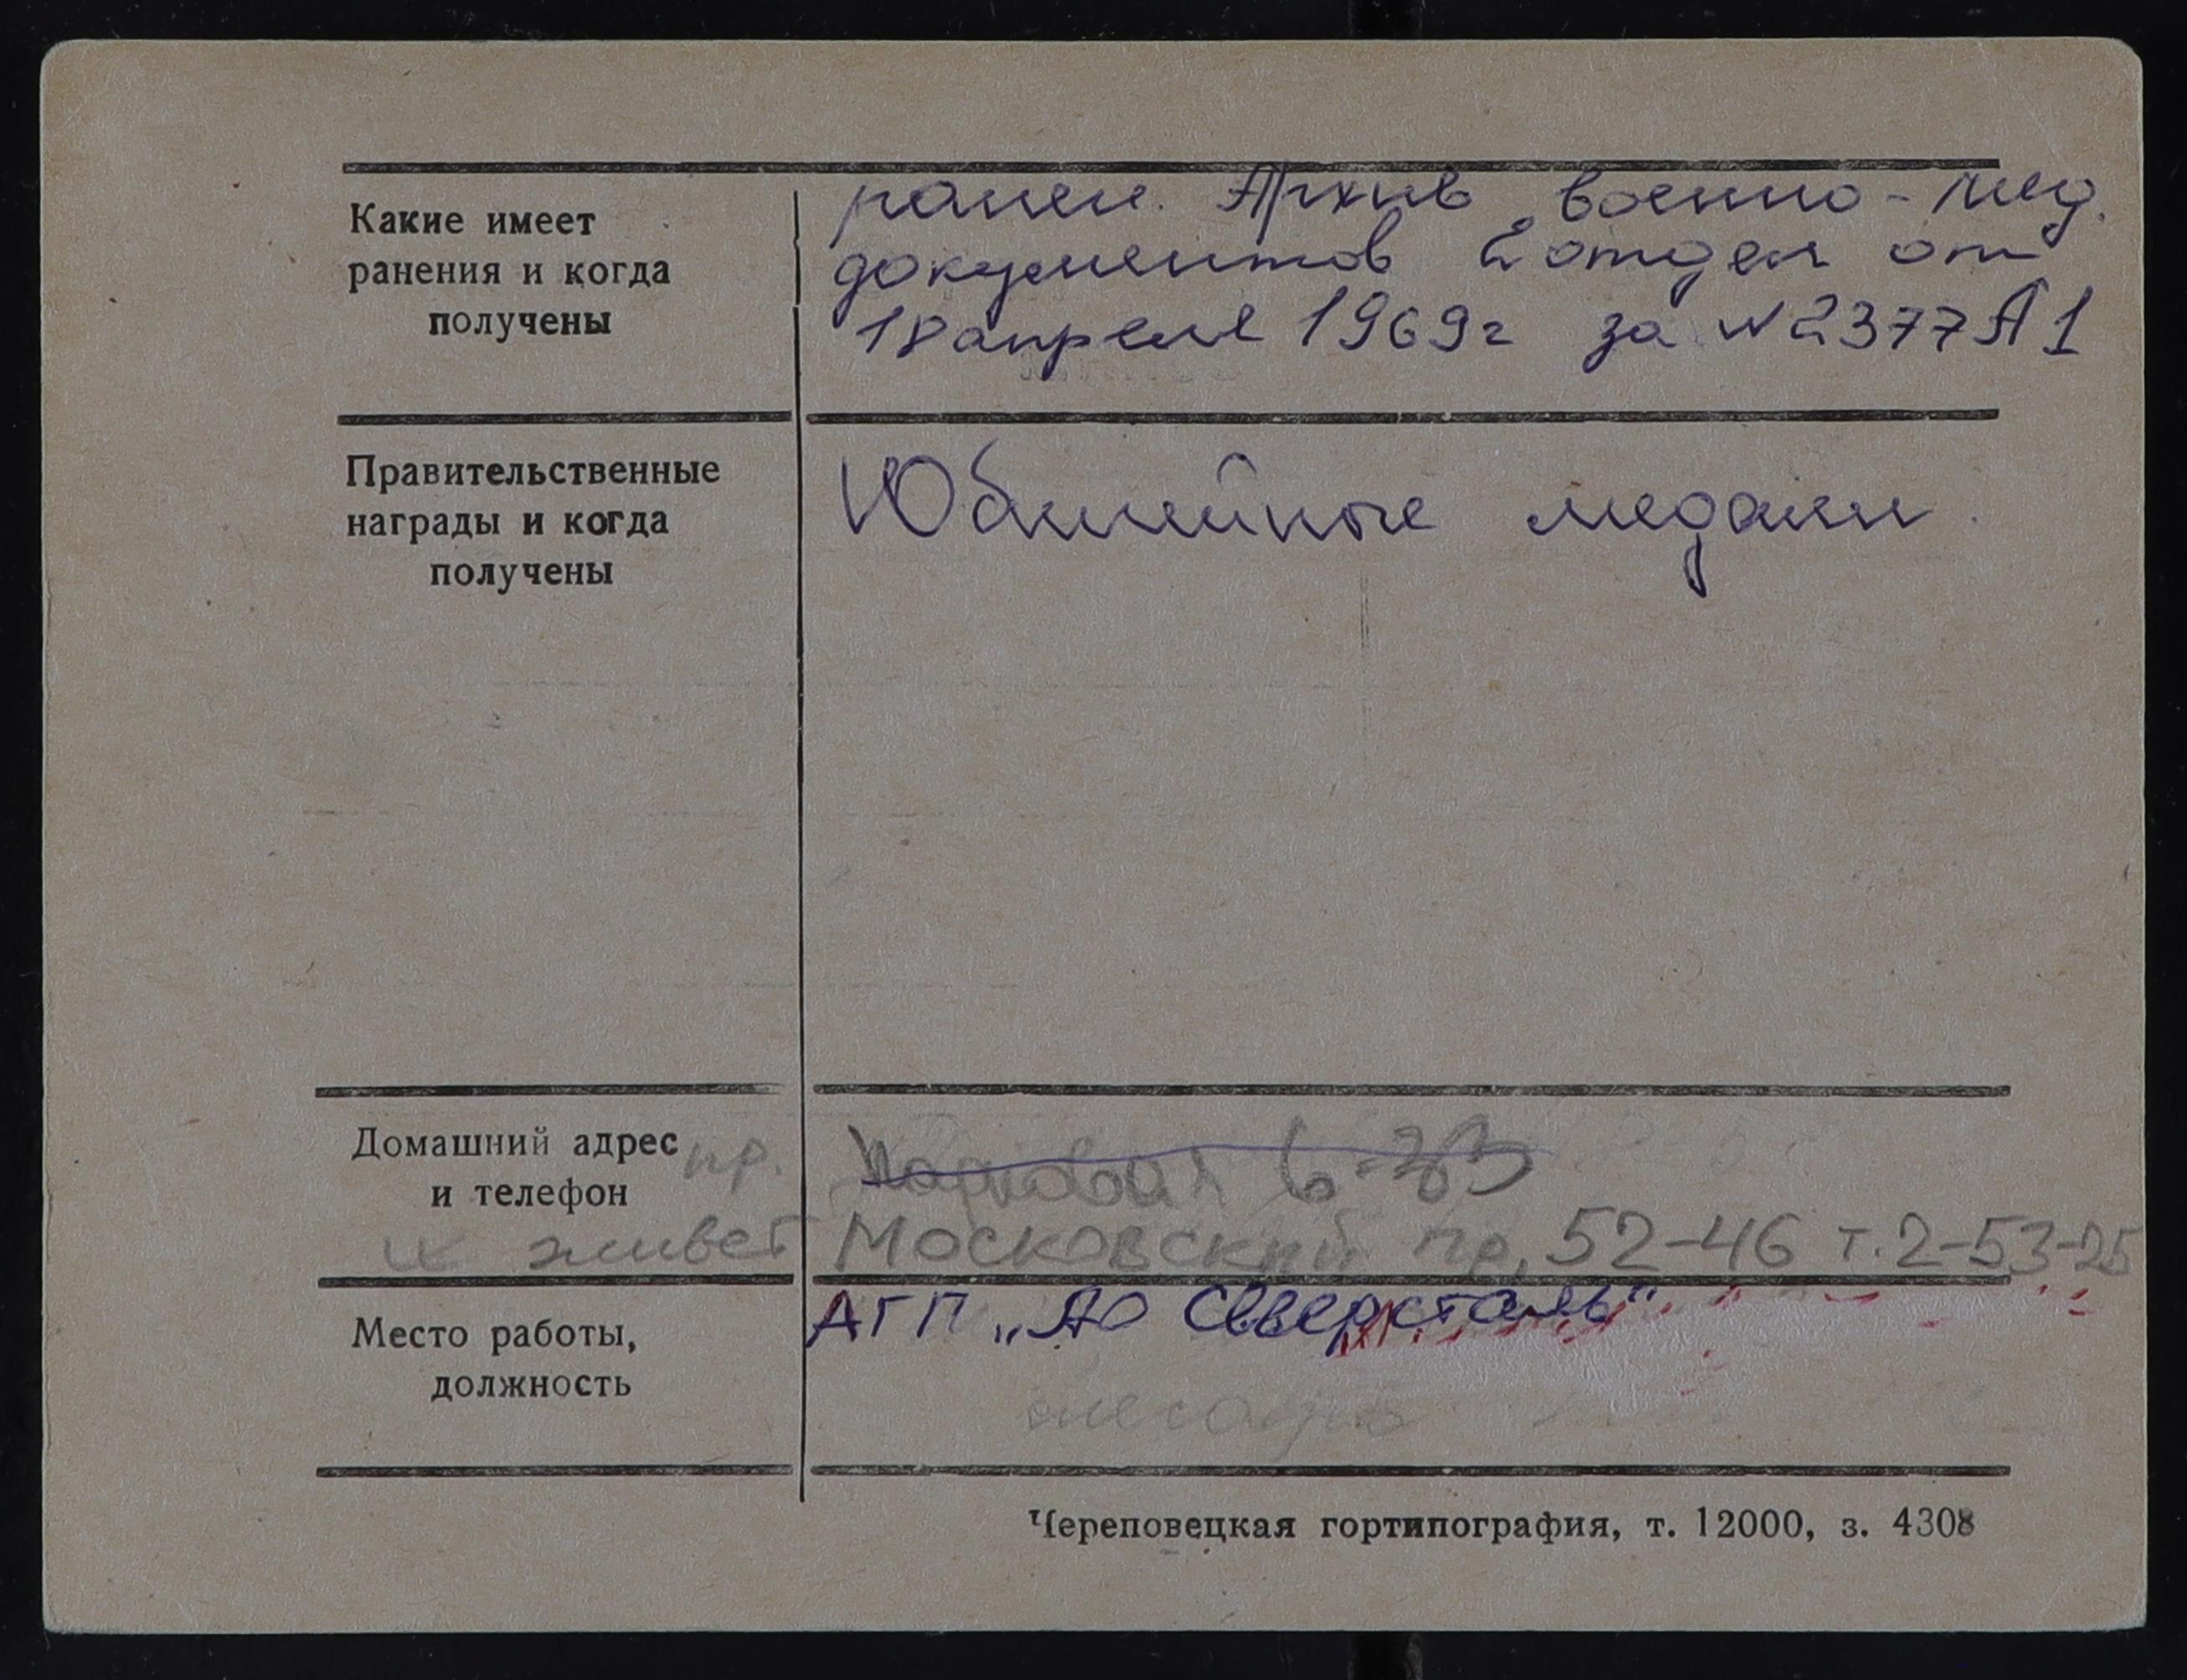 Какие имеет ранен. Архив военно-мед.
ранения и когда документов 2 отдел от
получены 18 апреля 1969г за №2377А1
Правительственные Юбилейные медали.
награды и когда
получены
Домашний адрес пр. 6-33
и телефон
живет Московский пр. 52-46 т. 2-53-25
Место работы, АГП „АО Северсталь"
должность слесарь
Череповецкая гортипография, т. 12000, з. 4308